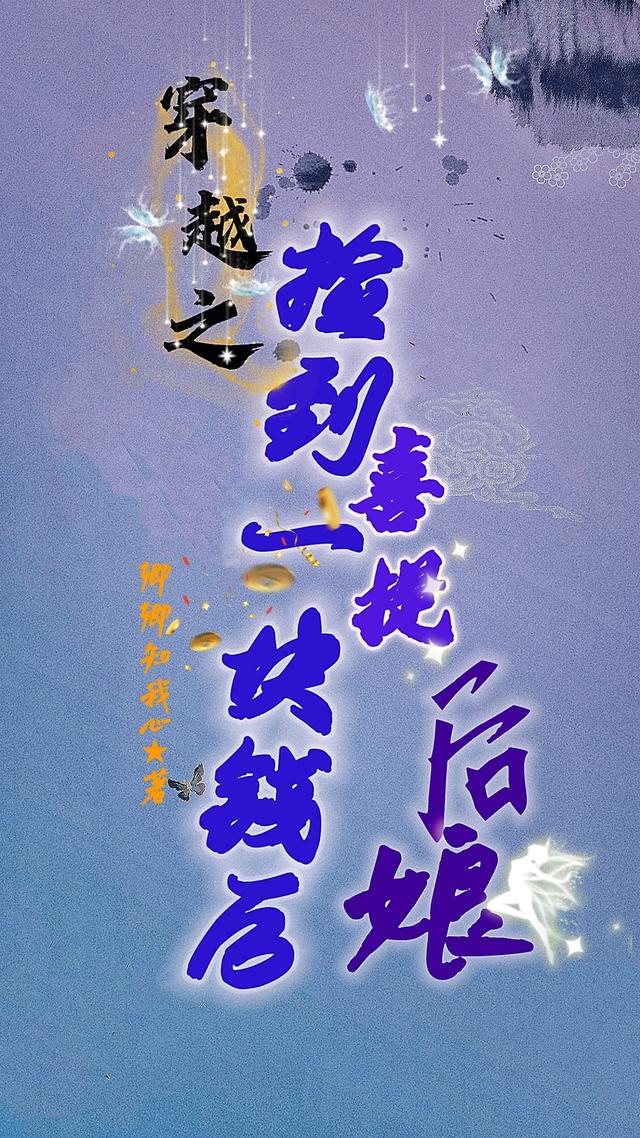 穿越之
捡到一块钱后
喜提
后娘
卿卿知我心★著